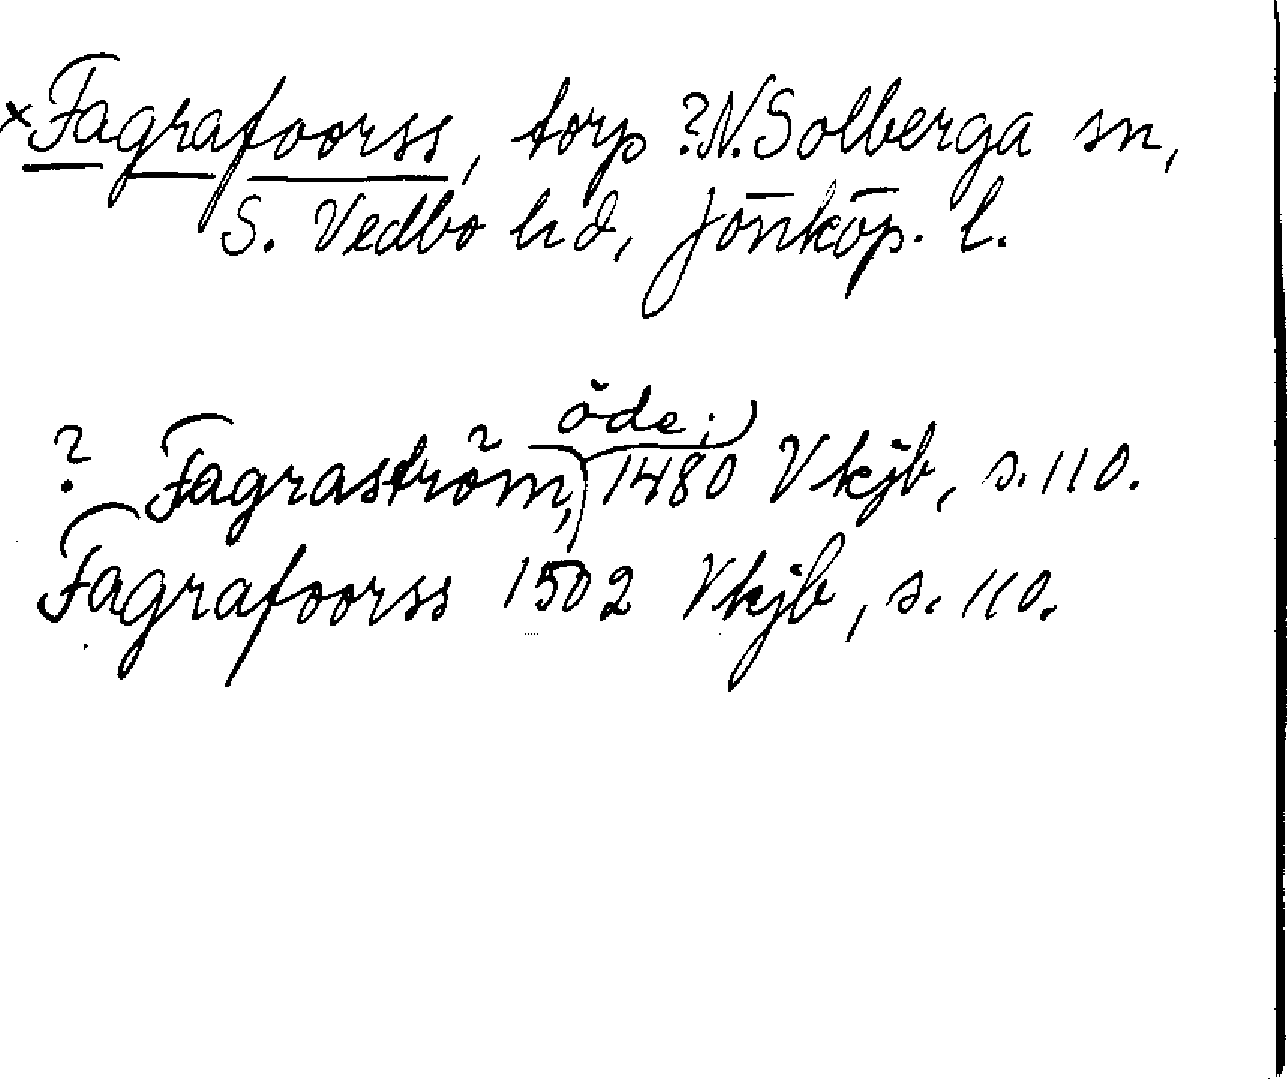 ×Fagrafoorss, torp ?N. Solberga sn,
S. Vedbo hd, Jönköp. l.
öde;
? Fagraström, 1480 Vkjb, s. 110.
Fagrafoorss 1502 Vkjb, s. 110.